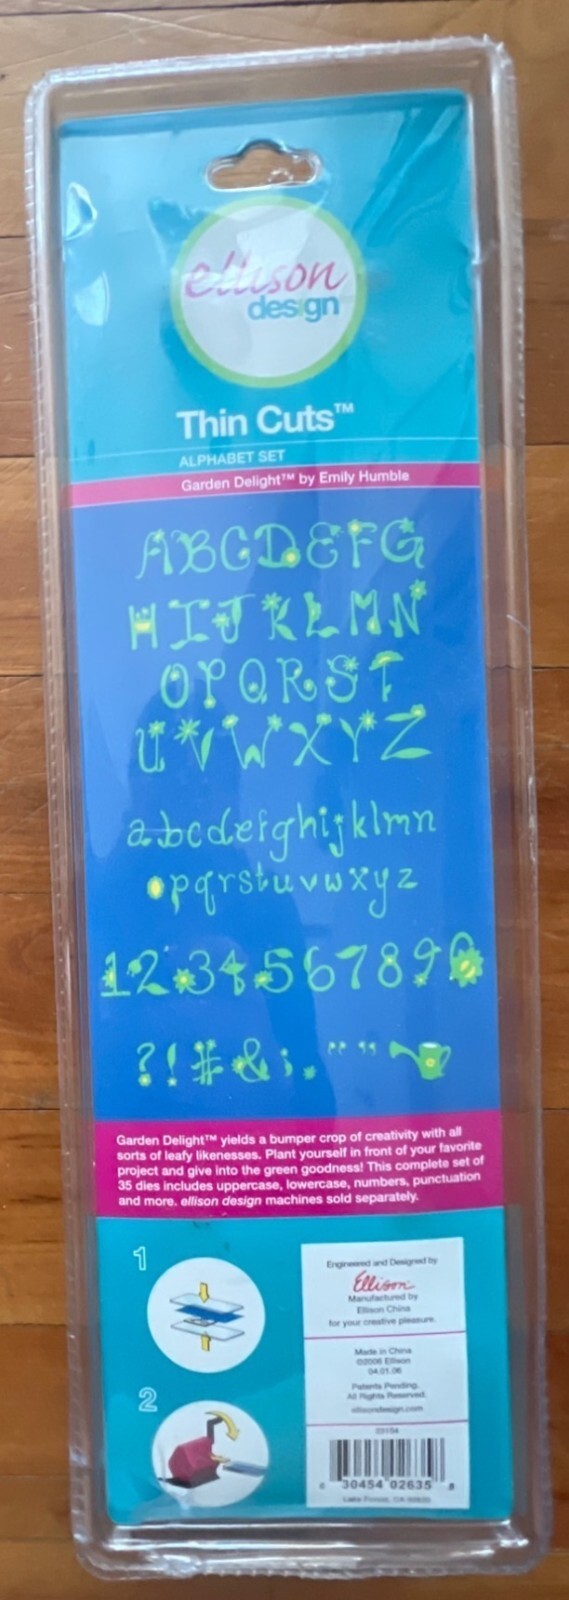 ellison
design
Thin Cuts™
ALPHABET SET
Garden Delight™ by Emily Humble
ABCDEFG
HIJKLMN
OPQRST
UVWXYZ
abcdefghijklmn
opqrstuvwxyz
1234567890
?!#&;.""''
Garden Delight™ yields a bumper crop of creativity with all
sorts of leafy likenesses. Plant yourself in front of your favorite
project and give into the green goodness! This complete set of
35 dies includes uppercase, lowercase, numbers, punctuation
and more. ellison design machines sold separately.
1
2
Engineered and Designed by
Ellison
Manufactured by
Ellison China
for your creative pleasure.
Made in China
©2006 Ellison
04.01.06
Patents Pending.
All Rights Reserved.
ellisondesign.com
30454 02635
Lake Forest, CA